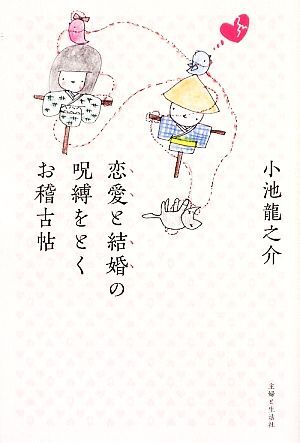 恋愛と結婚の
呪縛をとく
お稽古帖
小池龍之介
主婦と生活社